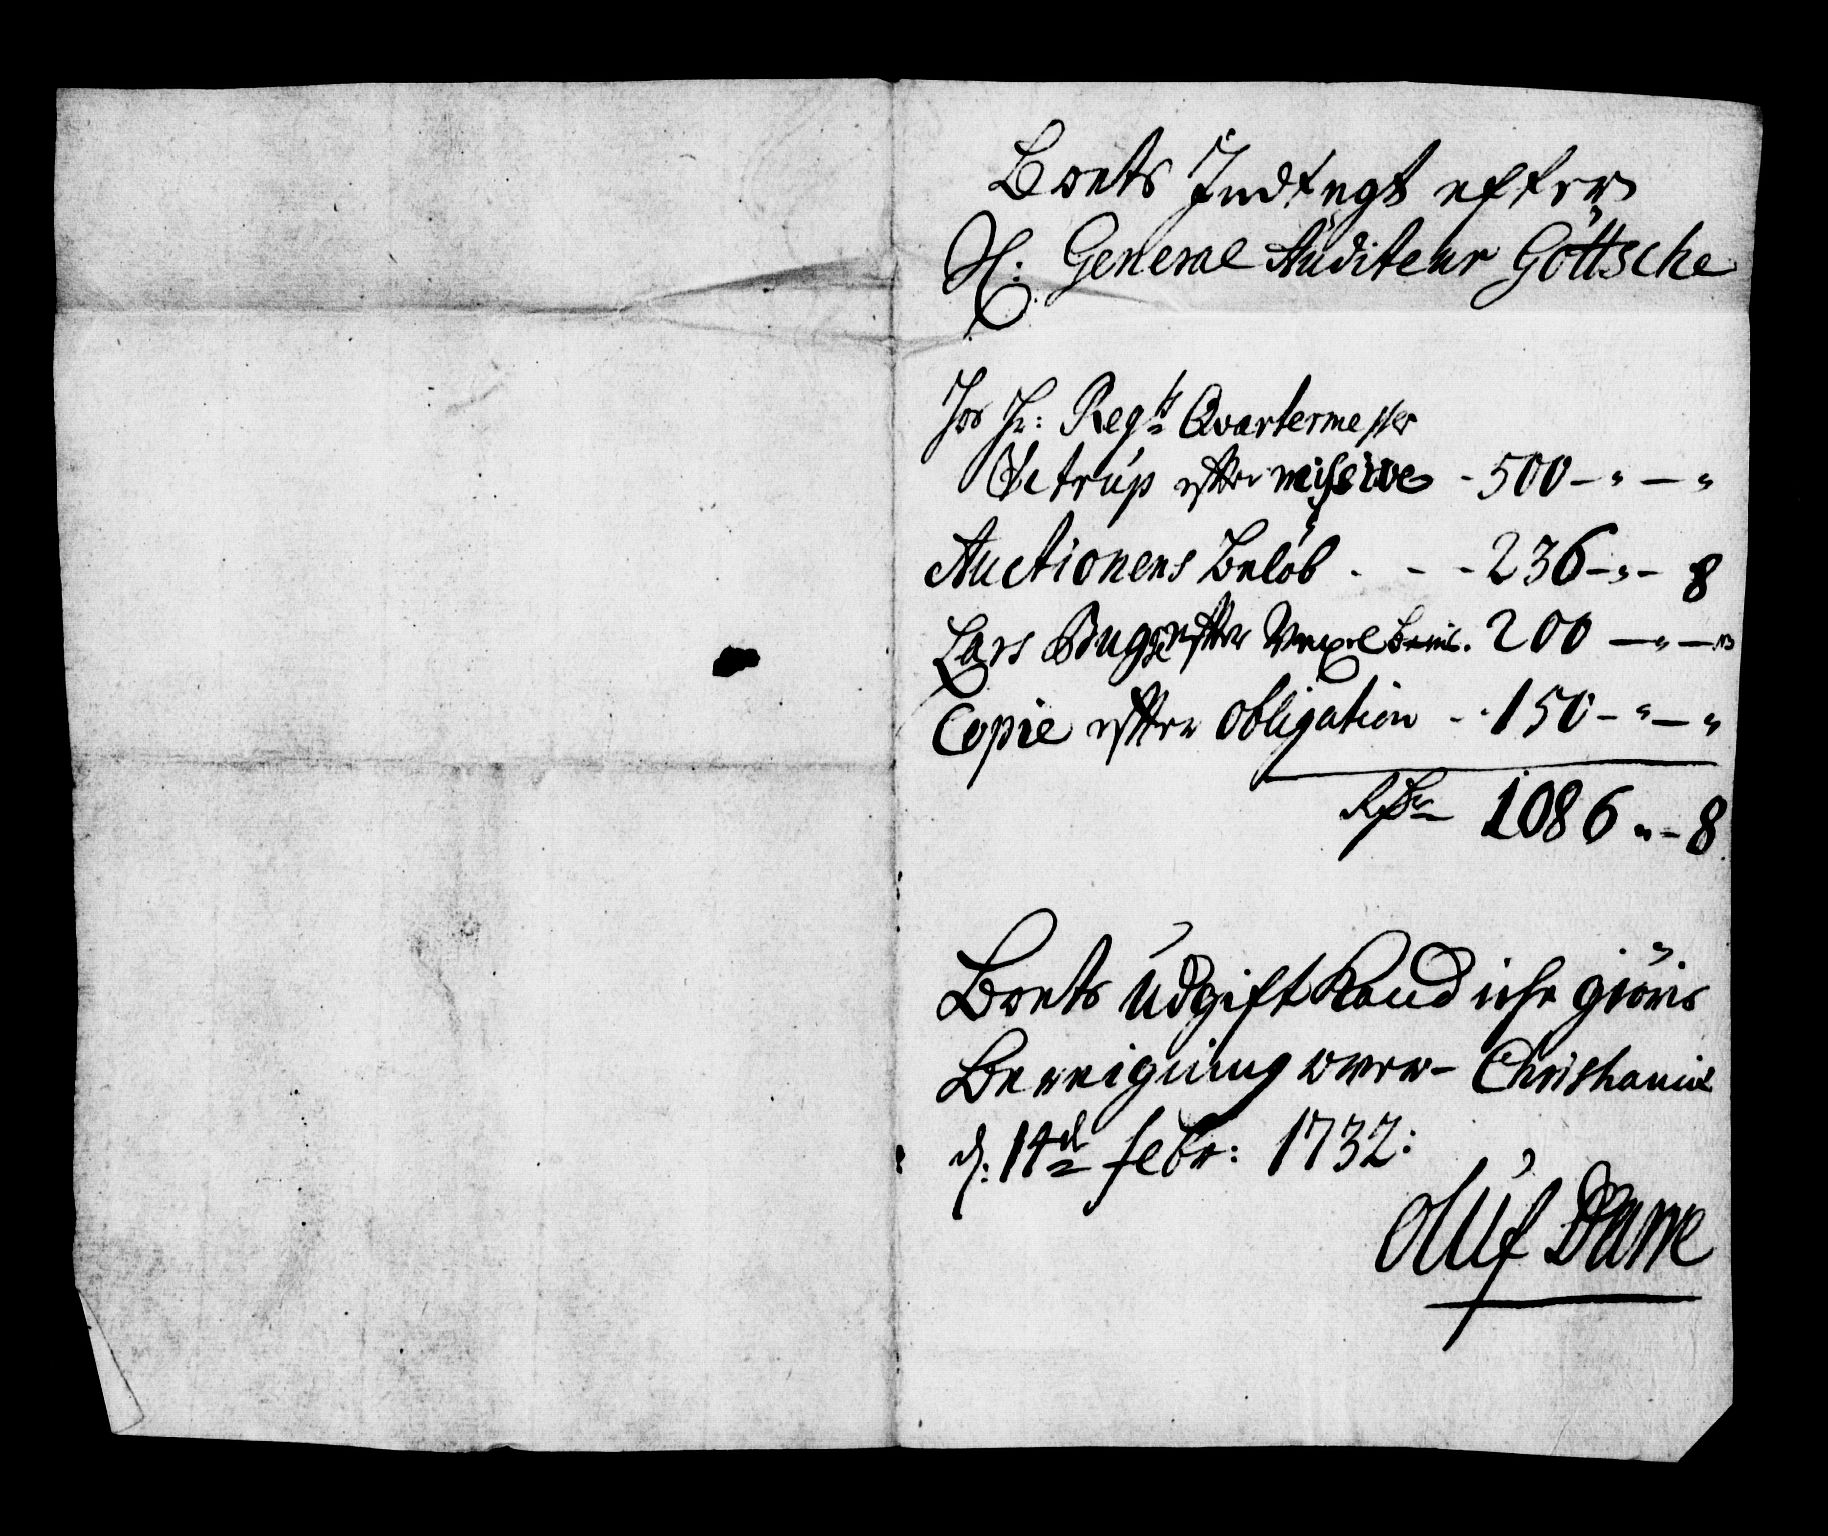 Boets Indtegt efter
H: General Auditeur Göttsche
Hos Hr: Regts Qvartermester
Vetrup efter missive - 500 - " - "
Auctionens Belöb . - - 236 - " - 8
Lars Bugge efter Vexel brev. 200 - " - "
Copie efter obligation - - 150 - " - "
Rdr 1086 " - 8
Boets Udgift Kand iche giöris
Beregning over - Christiania
d: 14de Febr: 1732:
Oluf Darre